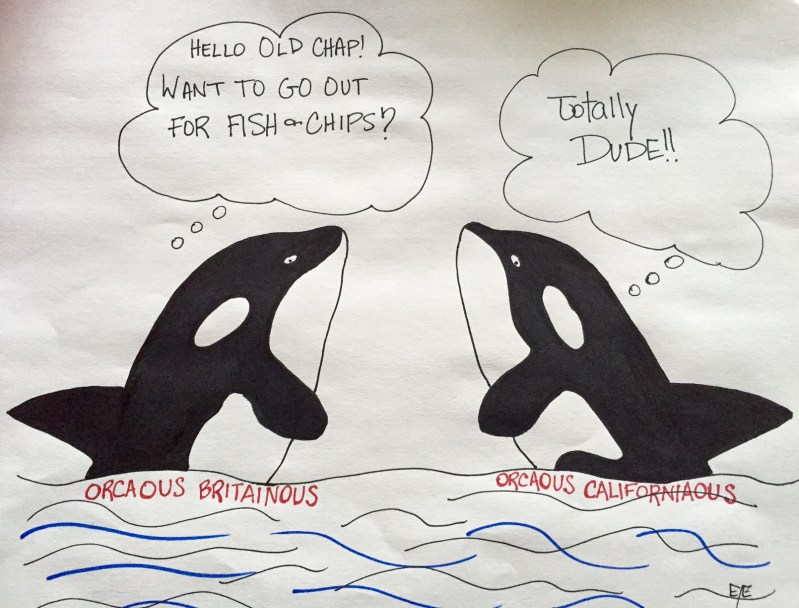 HELLO OLD CHAP!
WANT TO GO OUT
FOR FISH & CHIPS?
Totally
DUDE!!
ORCAOUS BRITAINOUS
ORCAOUS CALIFORNIAOUS
EYE